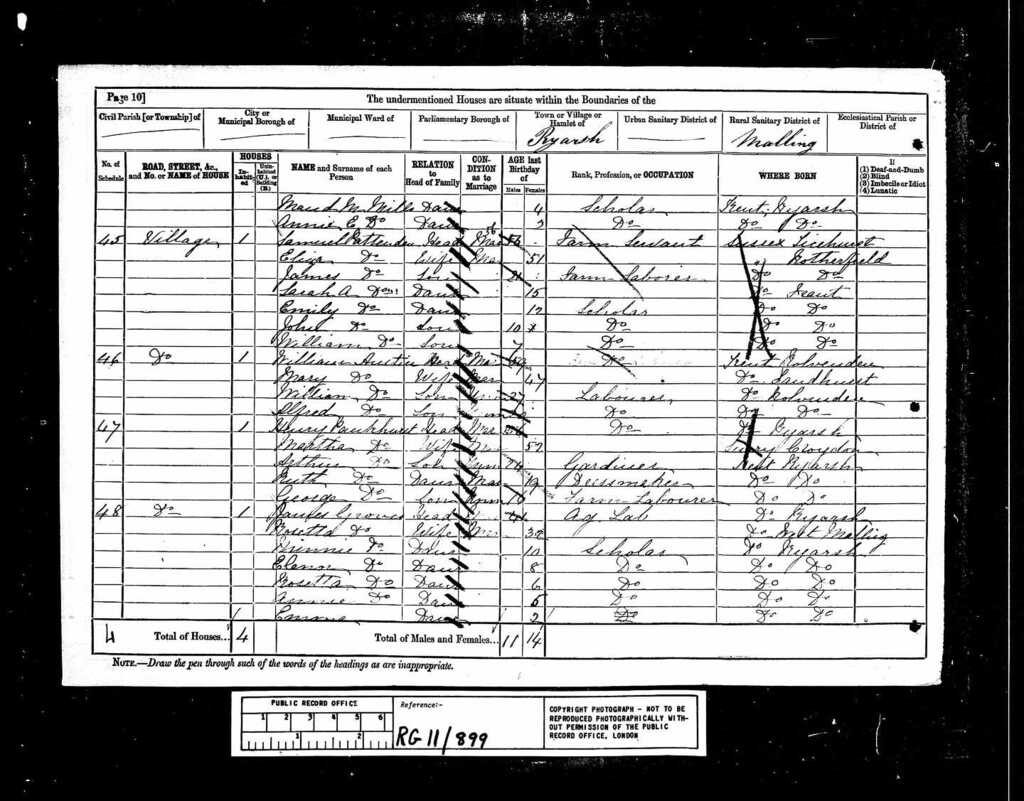 Page 10]
The undermentioned Houses are situate within the Boundaries of the
Civil Parish [or Township] of
City or Municipal Borough of
Municipal Ward of
Parliamentary Borough of
Town or Village or Hamlet of
Ryarsh
Urban Sanitary District of
Rural Sanitary District of
Malling
Ecclesiastical Parish or District of
No. of Schedule
ROAD, STREET, &c., and No. or NAME of HOUSE
HOUSES
In-habited
Uninhabited (U.), or Building (B.)
NAME and Surname of each Person
RELATION to Head of Family
CONDITION as to Marriage
AGE last Birthday of
Males
Females
Rank, Profession, or OCCUPATION
WHERE BORN
If
(1) Deaf-and-Dumb
(2) Blind
(3) Imbecile or Idiot
(4) Lunatic
Maud M Mills Daur 4 Scholar Kent; Ryarsh
Annie E Do Daur 2 Do Do Do
45 Village 1 Samuel Pattenden Head Mar 56 Farm Servant Sussex Ticehurst
Eliza Do Wife Mar 51 Rotherfield
James Do Son 21 Farm Laborer Do Do
Sarah A Do Daur 15 Do Frant
Emily Do Daur 12 Scholar Do Do
John Do Son 10 Do Do Do
William Do Son 7 Do Do Do
46 Do 1 William Austin Head Mar Do Kent Rolvenden
Mary Do Wife Mar 47 Do Sandhurst
William Do Son 27 Labourer Do Rolvenden
Alfred Do Son Do Do Do
47 1 Henry Pankhurst Head Mar Do Do Ryarsh
Martha Do Wife 52 Surry Croydon
Arthur Do Son 24 Gardiner Kent Ryarsh
Ruth Do Daur 19 Dressmaker Do Do
George Do Son 16 Farm Labourer Do Do
48 Do 1 James Groves Head 41 Ag Lab Do Ryarsh
Rosetta Do Wife 32 Do West Malling
Minnie Do Daur 10 Scholar Do Ryarsh
Elenor Do Daur 8 Do Do Do
Rosetta Do Daur 6 Do Do Do
Annie Do Daur 5 Do Do Do
Emma Daur 2 Do Do Do
4 Total of Houses... 4 Total of Males and Females... 11 14
NOTE.—Draw the pen through such of the words of the headings as are inappropriate.
PUBLIC RECORD OFFICE
1 2 3 4 5 6
1 2
Reference:-
RG 11/899
COPYRIGHT PHOTOGRAPH - NOT TO BE
REPRODUCED PHOTOGRAPHICALLY WITH-
OUT PERMISSION OF THE PUBLIC
RECORD OFFICE, LONDON